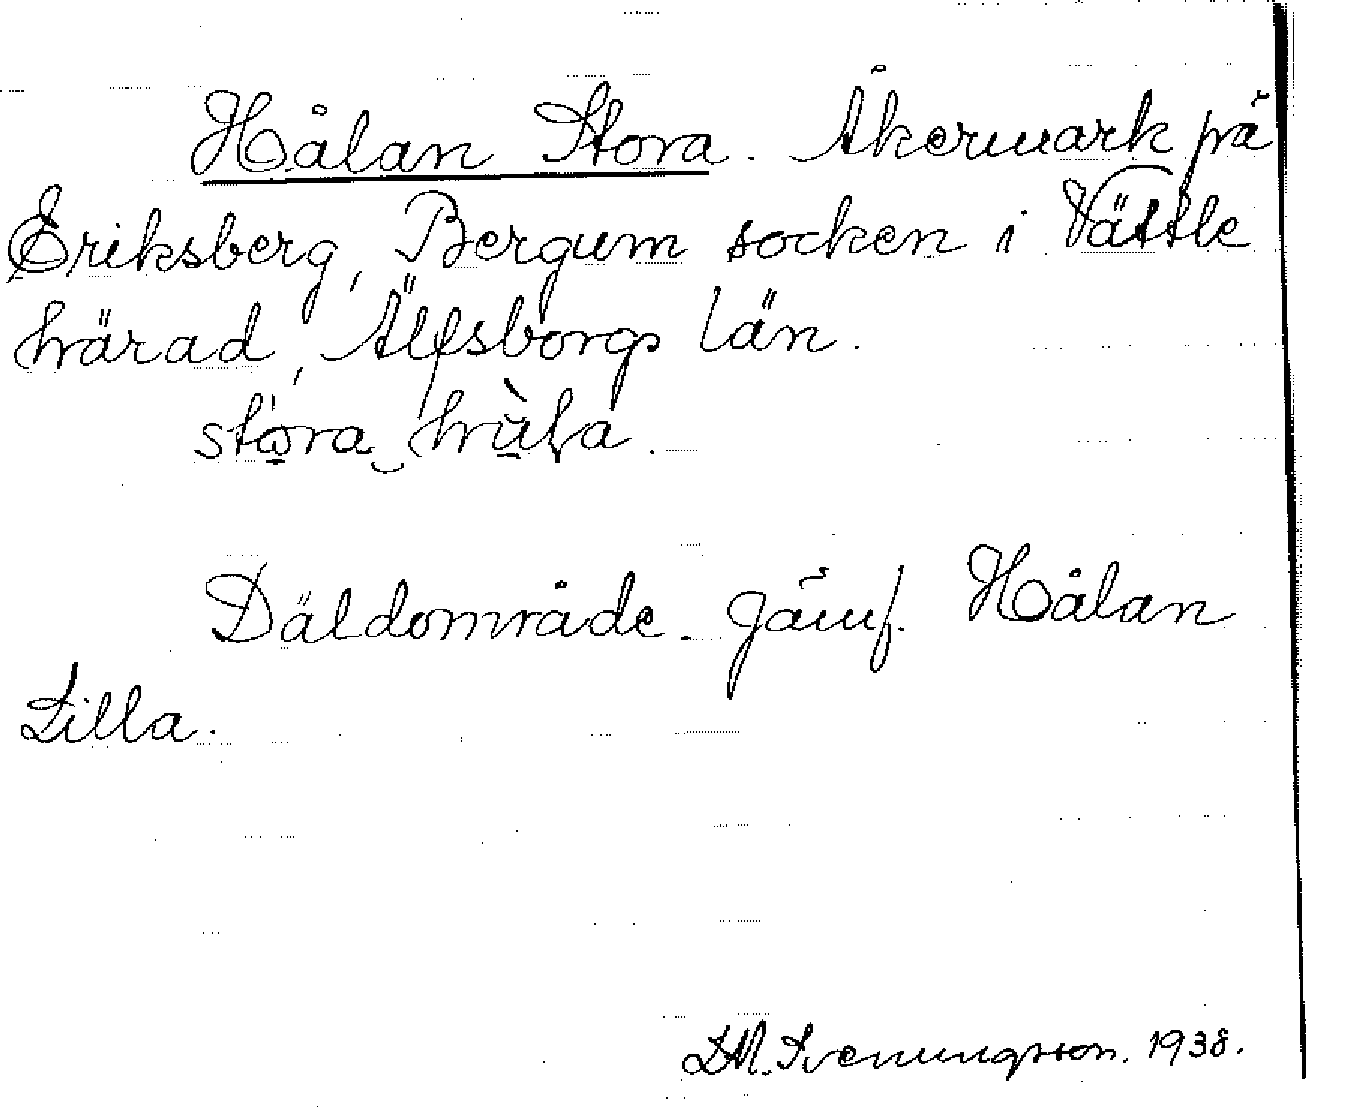 Hålan Stora. Åkermark på
Eriksberg, Bergum socken i Vättle
härad, Älfsborgs län.
stora hula.
Däldområde. Jämf. Hålan
Lilla.
D.M. Svenungsson. 1938.